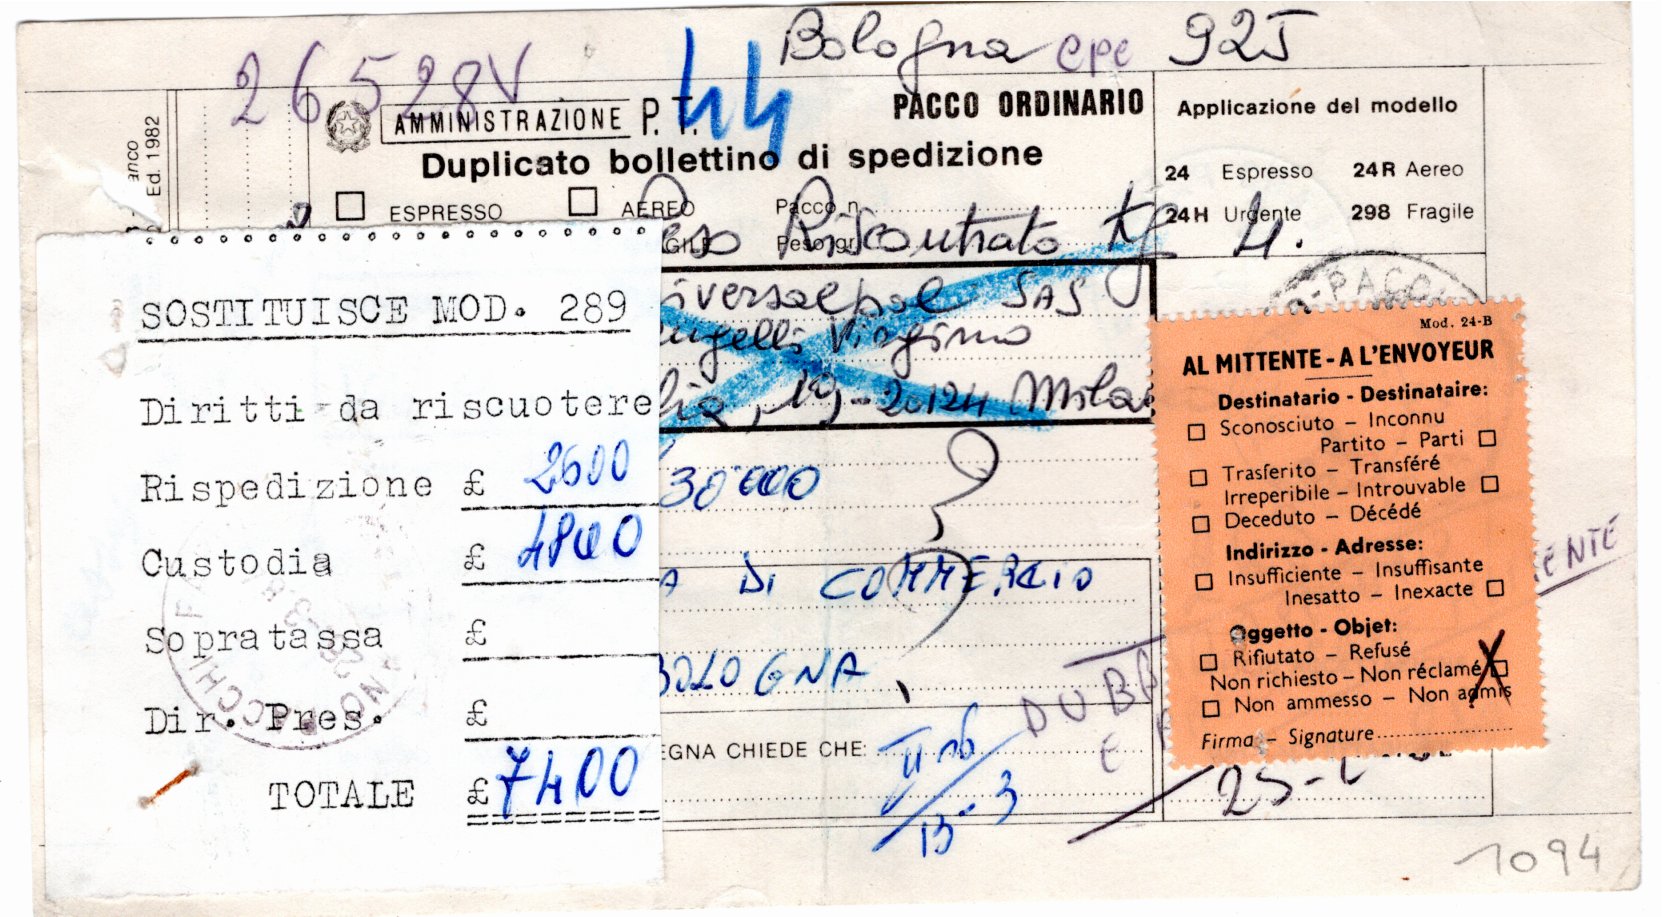 Bologna cpc 925
26528V
44
Ed. 1982
AMMINISTRAZIONE P. T.
PACCO ORDINARIO
Duplicato bollettino di spedizione
ESPRESSO
AEREO
Pacco n.
Peso gr.
Peso Riscontrato Kg 4.
Applicazione del modello
24 Espresso 24R Aereo
24H Urgente 298 Fragile
SAS
Virginio
19 - 20124 Mila
30000
DI COMMERCIO
BOLOGNA
EGNA CHIEDE CHE:
13-3
SOSTITUISCE MOD. 289
Diritti da riscuotere
Rispedizione £ 2600
Custodia £ 4800
Sopratassa £
Dir. Pres. £
TOTALE £ 7400
Mod. 24-B
AL MITTENTE - A L'ENVOYEUR
Destinatario - Destinataire:
Sconosciuto - Inconnu
Partito - Parti
Trasferito - Transféré
Irreperibile - Introuvable
Deceduto - Décédé
Indirizzo - Adresse:
Insufficiente - Insuffisante
Inesatto - Inexacte
Oggetto - Objet:
Rifiutato - Refusé
Non richiesto - Non réclamé
Non ammesso - Non admis
Firma - Signature
1094